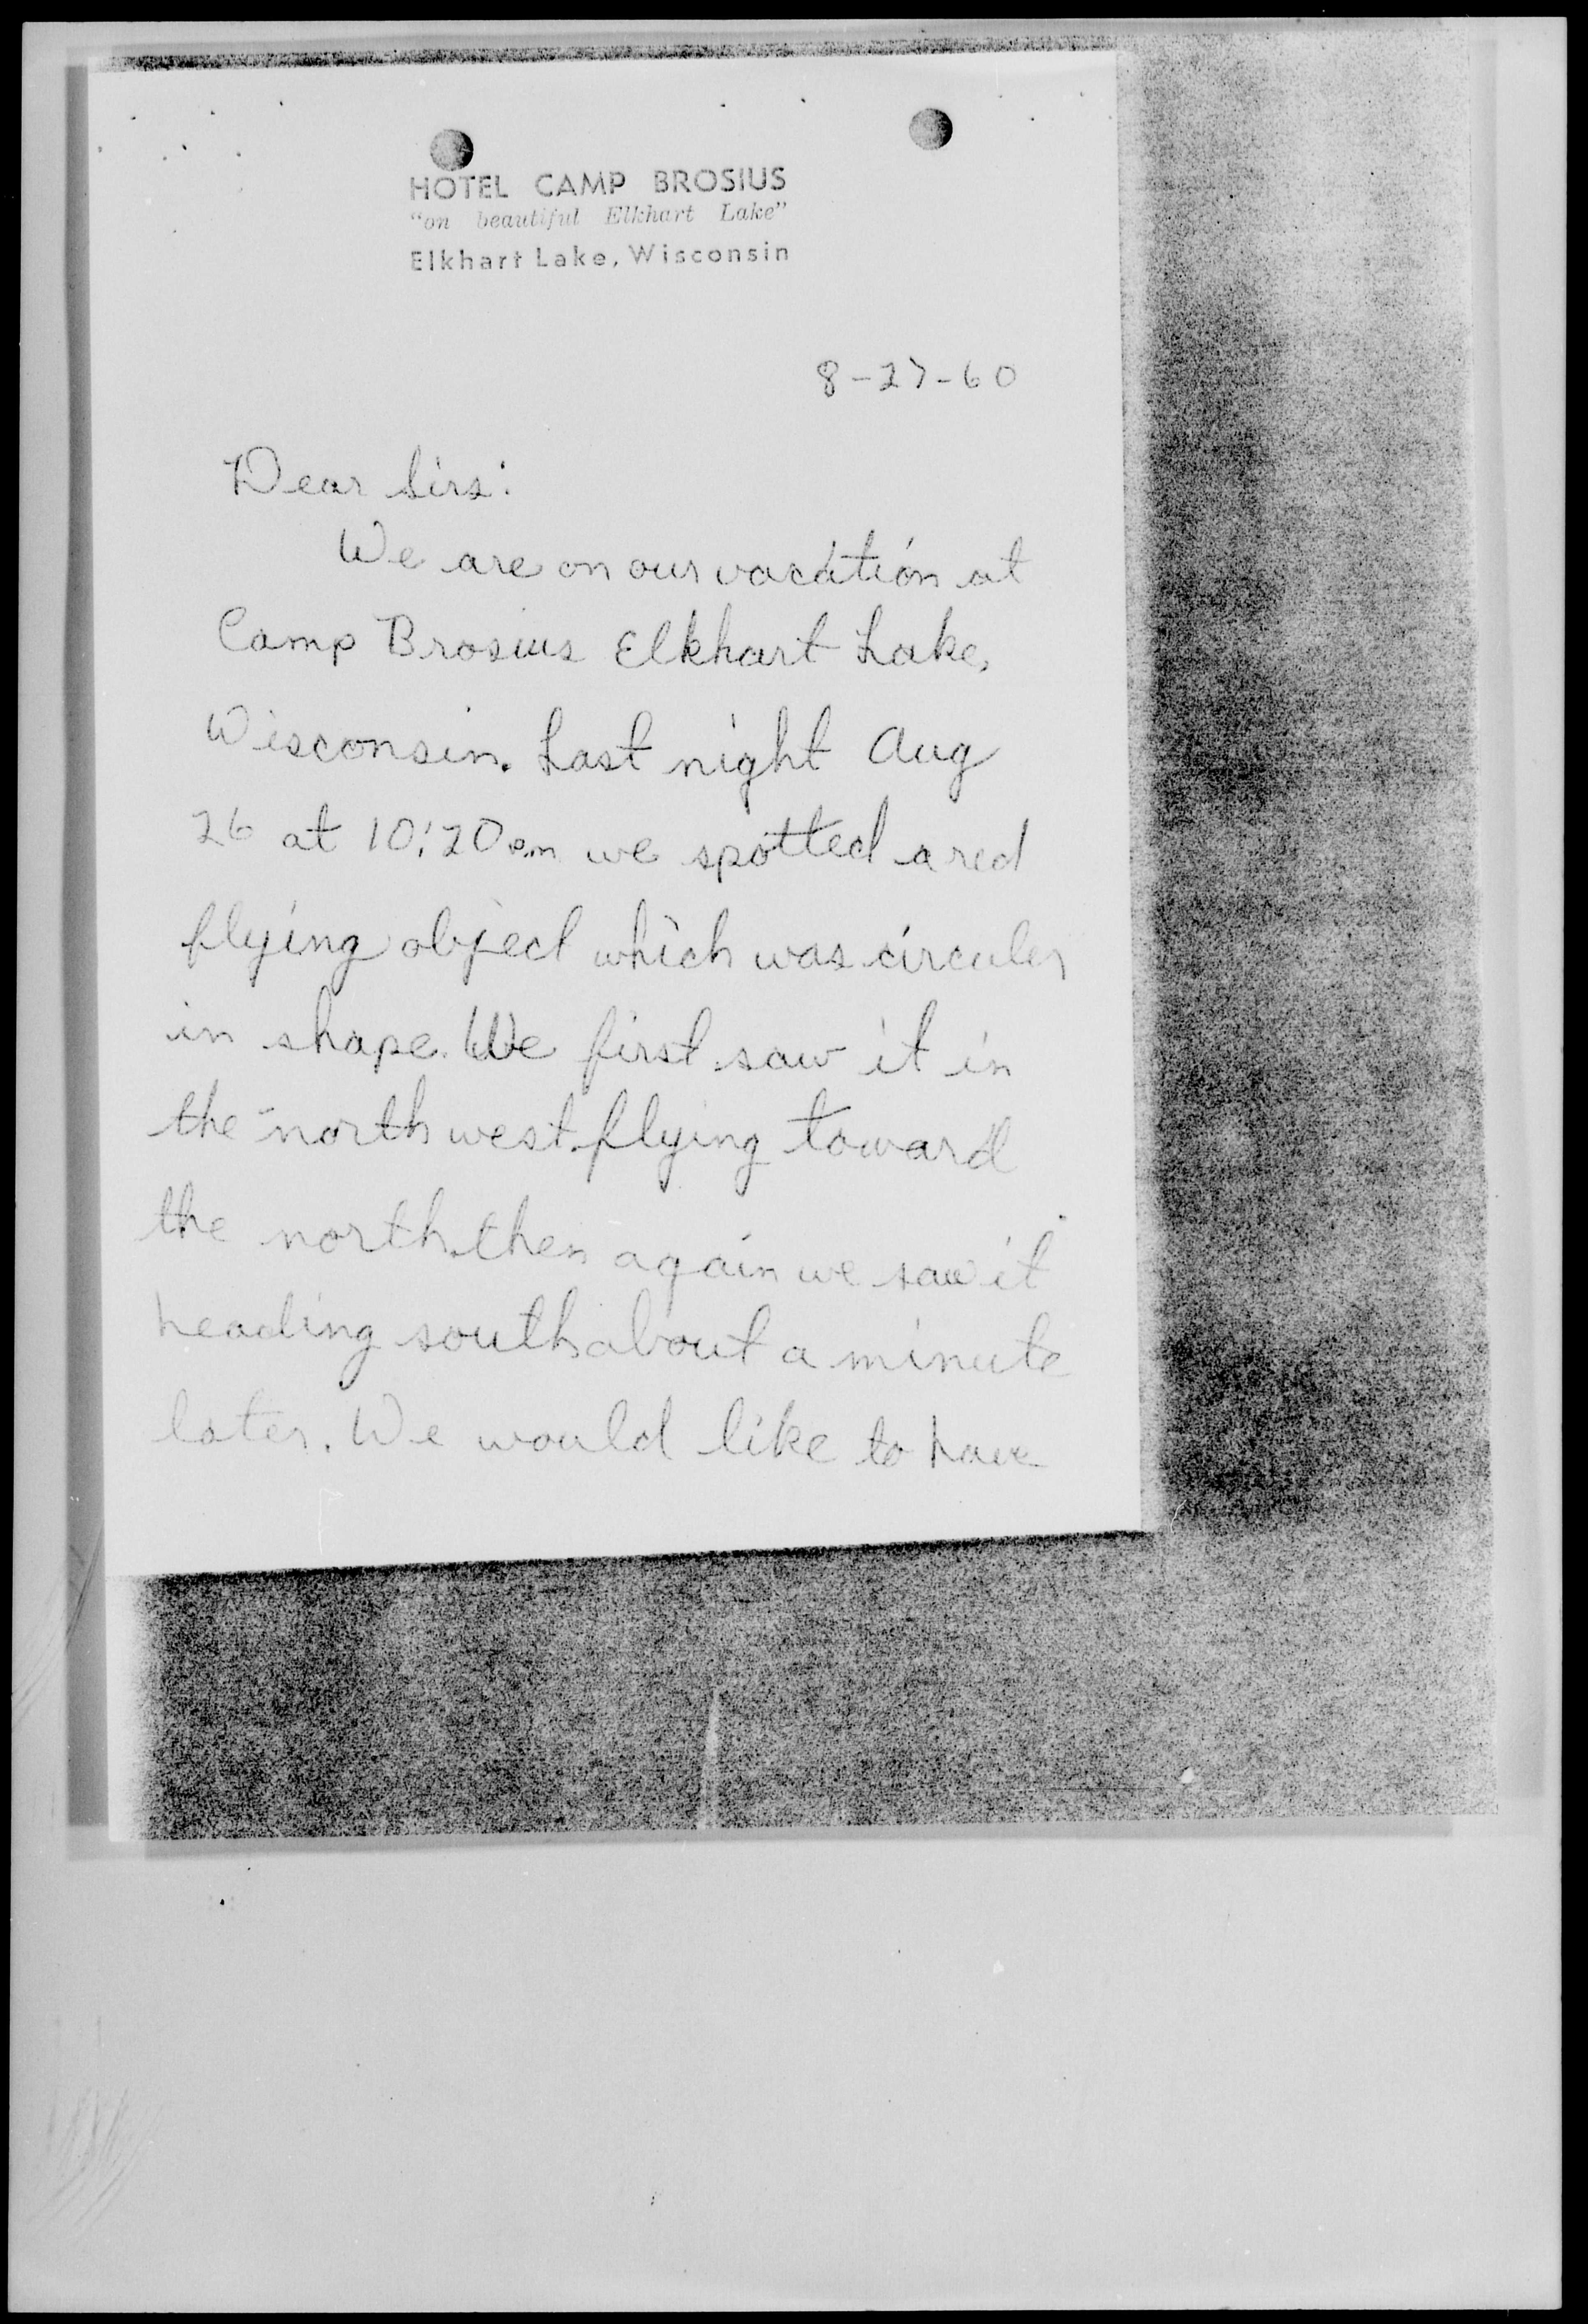 HOTEL CAMP BROSIUS
"on beautiful Elkhart Lake"
Elkhart Lake, Wisconsin
8-27-60
Dear Sirs:
We are on our vacation at
Camp Brosius Elkhart Lake,
Wisconsin. Last night Aug
26 at 10:20 p.m we spotted a red
flying object which was circuler
in shape. We first saw it in
the north west flying toward
the north. then again we saw it
heading south about a minute
later. We would like to have